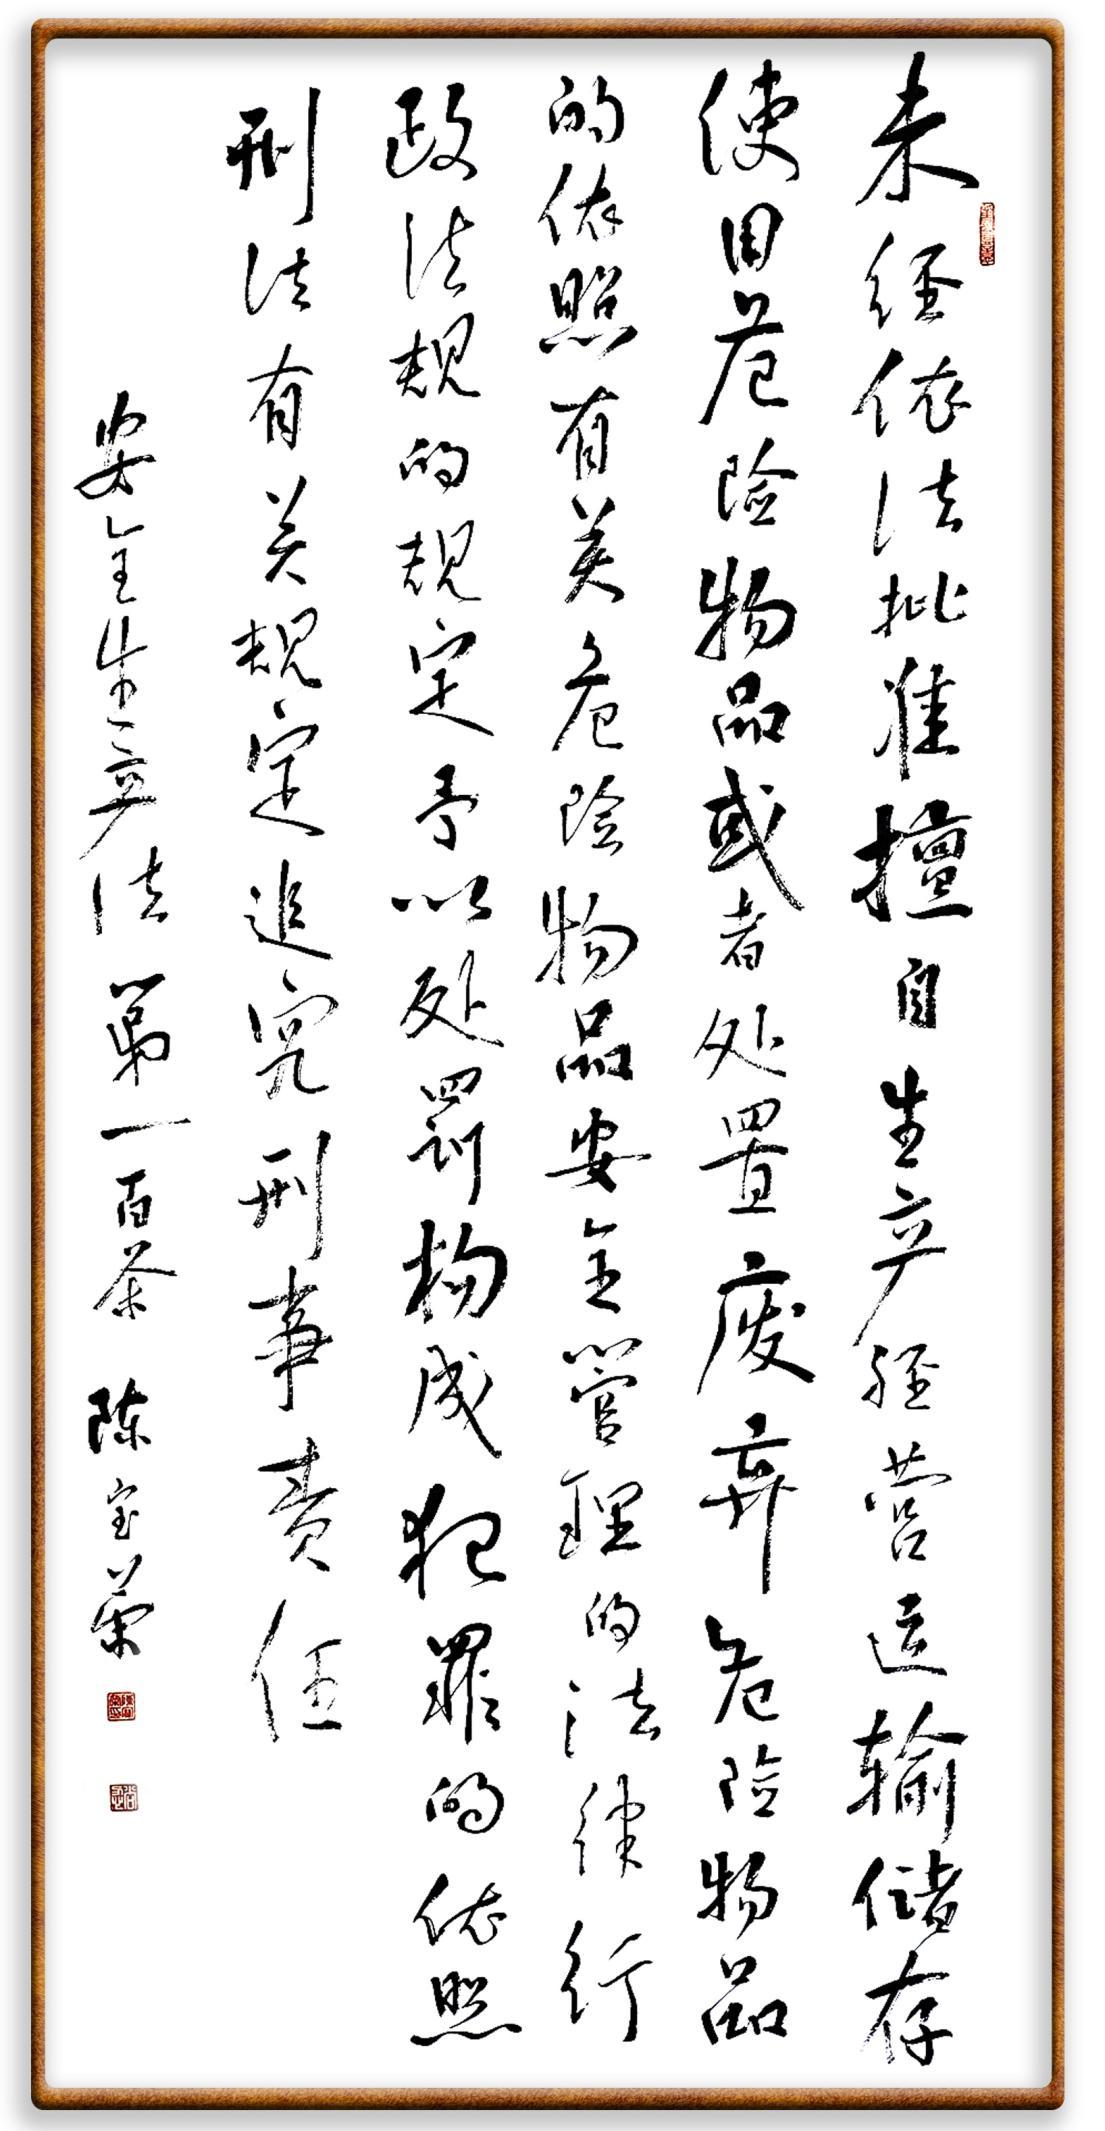 未经依法批准擅自生产经营运输储存
使用危险物品或者处置废弃危险物品
的依照有关危险物品安全管理的法律行
政法规的规定予以处罚构成犯罪的依照
刑法有关规定追究刑事责任
安全生产法第一百条 陈宝荣